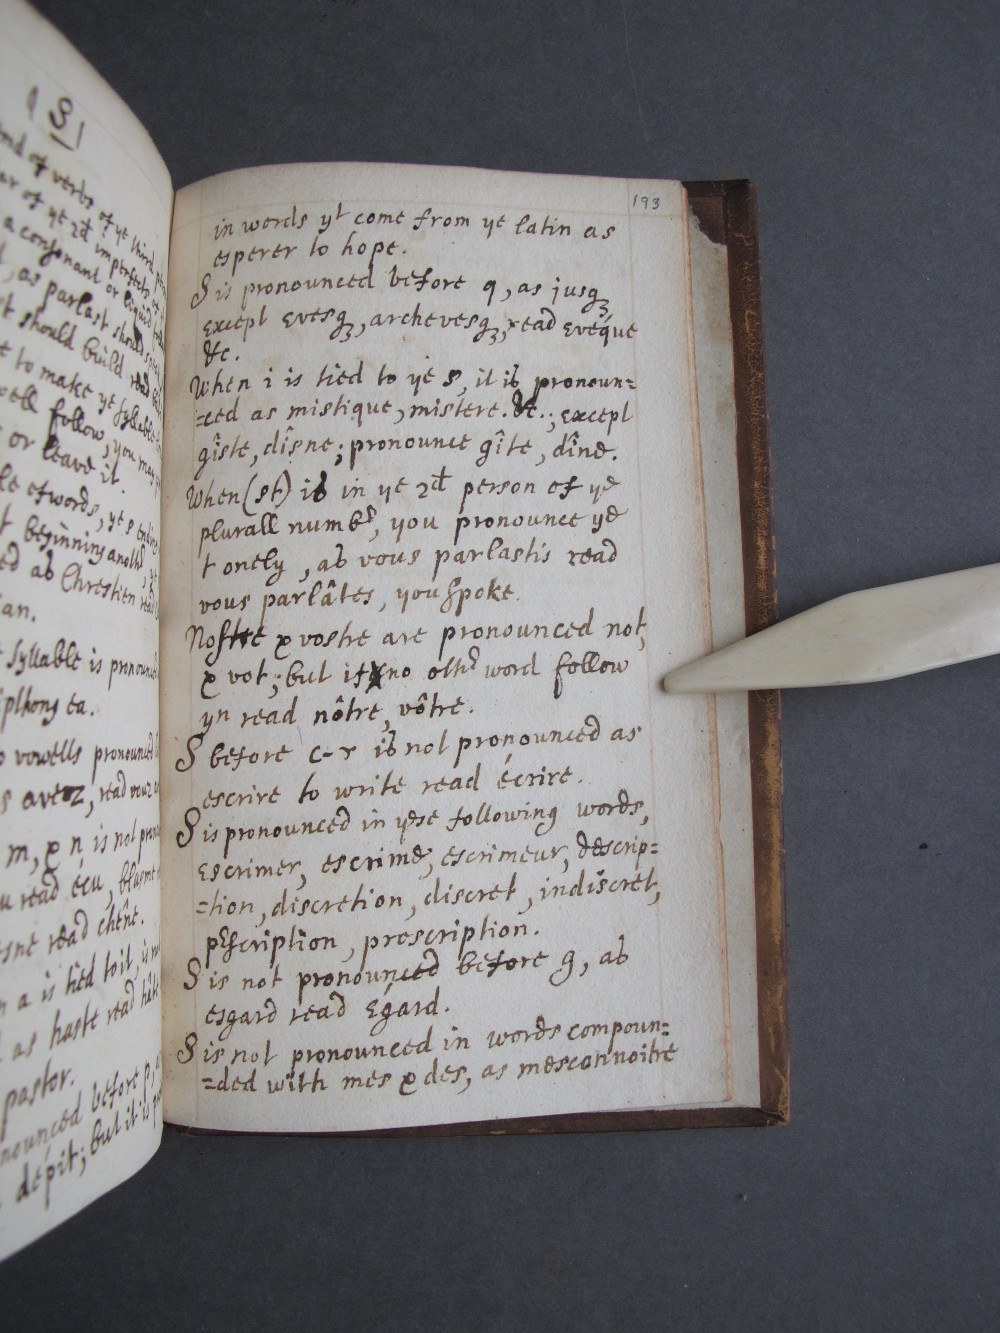 181
nd of verbs of ye third
ar of ye 2d imperfects
a consonant or liquid
as parlast should
should build read
to make ye syllable
well follow, you may
or leave it.
of words, ye s
beginning anothr, ye
ed as Chrestien read
ian.
syllable is pronounced
iphtong ea.
vowells pronounced
s avez, read vouz
m, & n is not
u read écu, blasme
sne read chêne.
n a is tied to it, is
as haste read hâte
pastor.
nounced before p,
dépit; but it is
193
in words yt come from ye latin as
esperer to hope.
S is pronounced before q, as jusqꝫ
except evesqꝫ, archevesqꝫ, read evéque
&c.
When i is tied to ye s, it is pronoun=
=ced as mistique, mistere. &c.; except
gîste, dîsne; pronounce gîte, dîne.
When (st) is in ye 2d person of ye
plurall numbr, you pronounce ye
t onely, as vous parlastis read
vous parlâtes, you spoke.
Nostre & vostre are pronounced not,
& vot; but if no othr word follow
yn read nôtre, vôtre.
S before c-r is not pronounced as
escrire to write read écrire.
S is pronounced in yese following words,
Escrimer, escrime, escrimeur, descrip=
=tion, discretion, discret, indiscret,
pescription, proscription.
S is not pronounced before g, as
esgard read Egard.
S is not pronounced in words compoun=
=ded with mes & des, as mesconnoitre